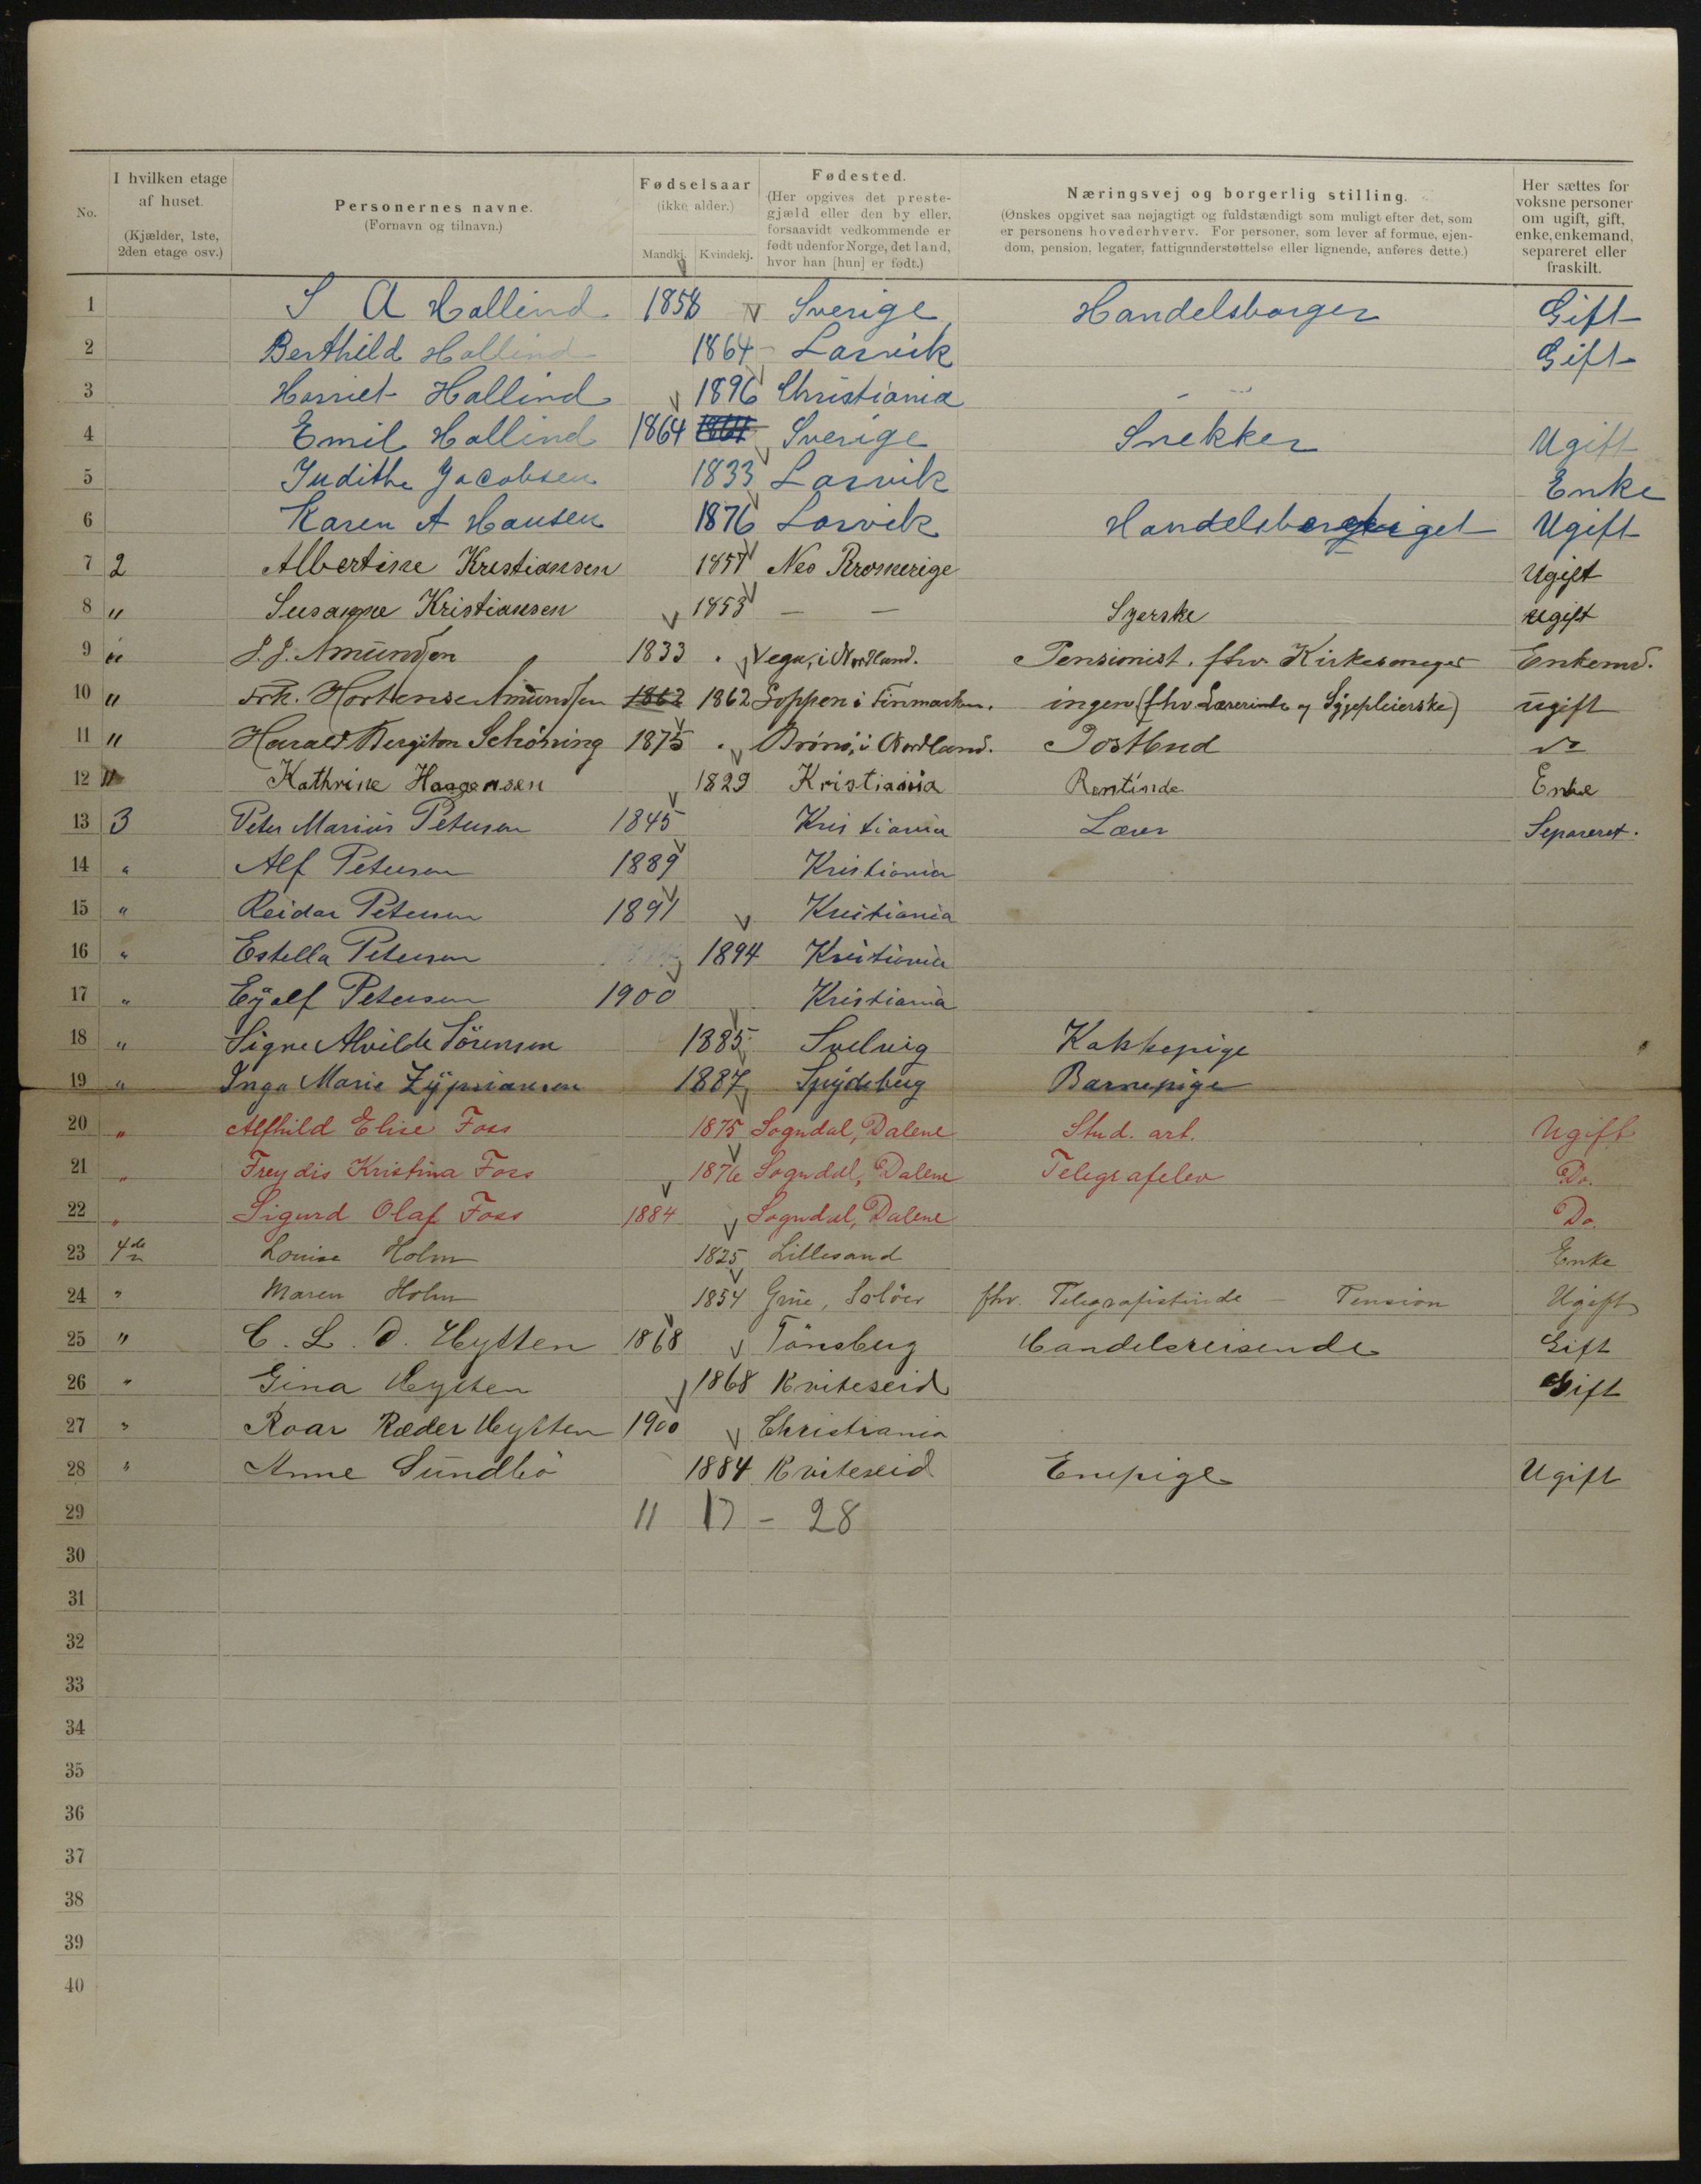 No.
I hvilken etage af huset. (Kjælder, 1ste, 2den etage osv.)
Personernes navne. (Fornavn og tilnavn.)
Fødselsaar (ikke alder.) Mandkj. Kvindekj.
Fødested. (Her opgives det prestegjæld eller den by eller, forsaavidt vedkommende er født udenfor Norge, det land, hvor han [hun] er født.)
Næringsvej og borgerlig stilling. (Ønskes opgivet saa nøjagtigt og fuldstændigt som muligt efter det, som er personens hovederhverv. For personer, som lever af formue, ejendom, pension, legater, fattigunderstøttelse eller lignende, anføres dette.)
Her sættes for voksne personer om ugift, gift, enke, enkemand, separeret eller fraskilt.
1 S A Hallind 1858 Sverige Handelsborger Gift
2 Berthild Hallind 1864 Larvik Gift
3 Harriet Hallind 1896 Christiania
4 Emil Hallind 1864 1864 Sverige Snekker Ugift
5 Judithe Jacobsen 1833 Larvik Enke
6 Karen A Hansen 1876 Larvik Ugift
7 2 Albertine Kristiansen 1857 Nes Romerige Ugift
8 " Susanne Kristiansen 1853 — — Syerske ugift
9 " J. J. Amundsen 1833 Vega, i Nordland. Pensionist, fhv. Kirkesanger Enkemd.
10 " Frk. Hortense Amundsen 1862 1862 Loppen i Finmarken. ingen (fhv Lærerinde og Sygepleierske) ugift
11 " Harald Bergiton Schöning 1875 Brönö, i Nordland. Postbud do
12 " Kathrine Haagensen 1829 Kristiania Rentinde Enke
13 3 Peter Marius Petersen 1845 Kristiania Lærer Separeret.
14 " Alf Petersen 1889 Kristiania
15 " Reidar Petersen 1891 Kristiania
16 " Estella Petersen 1894 Kristiania
17 " Eyolf Petersen 1900 Kristiania
18 " Signe Alvilde Sörensen 1885 Svelvig Kokkepige
19 " Inga Marie 1887 Spydeberg Barnepige
20 " Alfhild Elise Foss 1875 Sogndal, Dalene Stud. art. Ugift
21 " Freydis Kristina Foss 1876 Sogndal, Dalene Telegrafelev Do.
22 " Sigurd Olaf Foss 1884 Sogndal, Dalene Do.
23 4de Louise Holm 1825 Lillesand Enke
24 " Maren Holm 1854 Grue, Solöer fhv. Telegrafistinde — Pension Ugift
25 " C. L. D. Hytten 1868 Tönsberg Handelsreisende Gift
26 " Gina Hytten 1868 Kviteseid Gift
27 " Roar Ræder Hytten 1900 Christiania
28 " Anne Sundbö 1884 Kviteseid Enepige Ugift
29 11 17 – 28
30
31
32
33
34
35
36
37
38
39
40